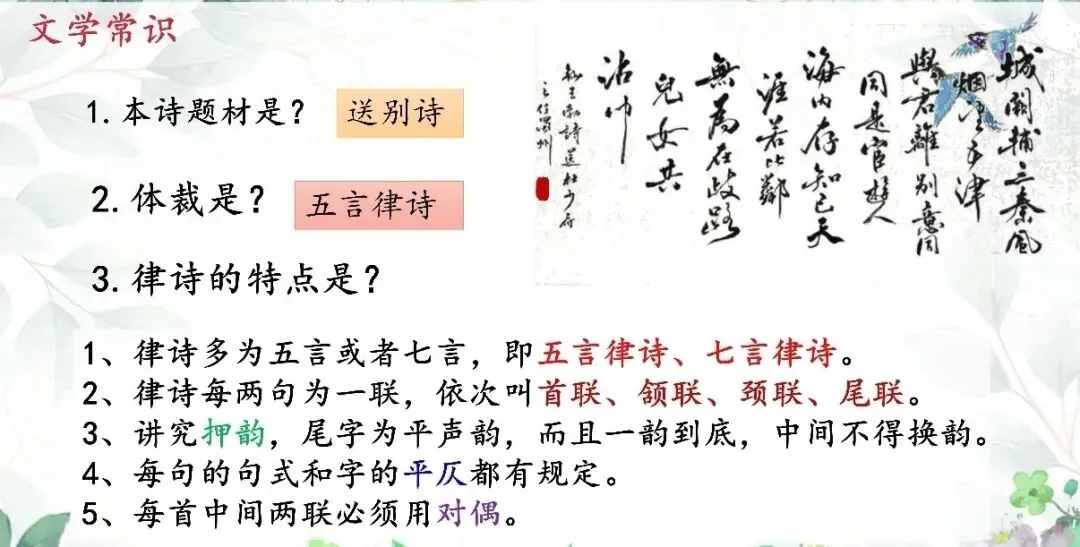 文学常识
1.本诗题材是？ 送别诗
2.体裁是？ 五言律诗
3.律诗的特点是？
城闕輔三秦風
烟望五津
與君離别意同
同是宦遊人
海内存知己天
涯若比鄰
無為在歧路
兒女共
沾巾
1、律诗多为五言或者七言，即五言律诗、七言律诗。
2、律诗每两句为一联，依次叫首联、颔联、颈联、尾联。
3、讲究押韵，尾字为平声韵，而且一韵到底，中间不得换韵。
4、每句的句式和字的平仄都有规定。
5、每首中间两联必须用对偶。